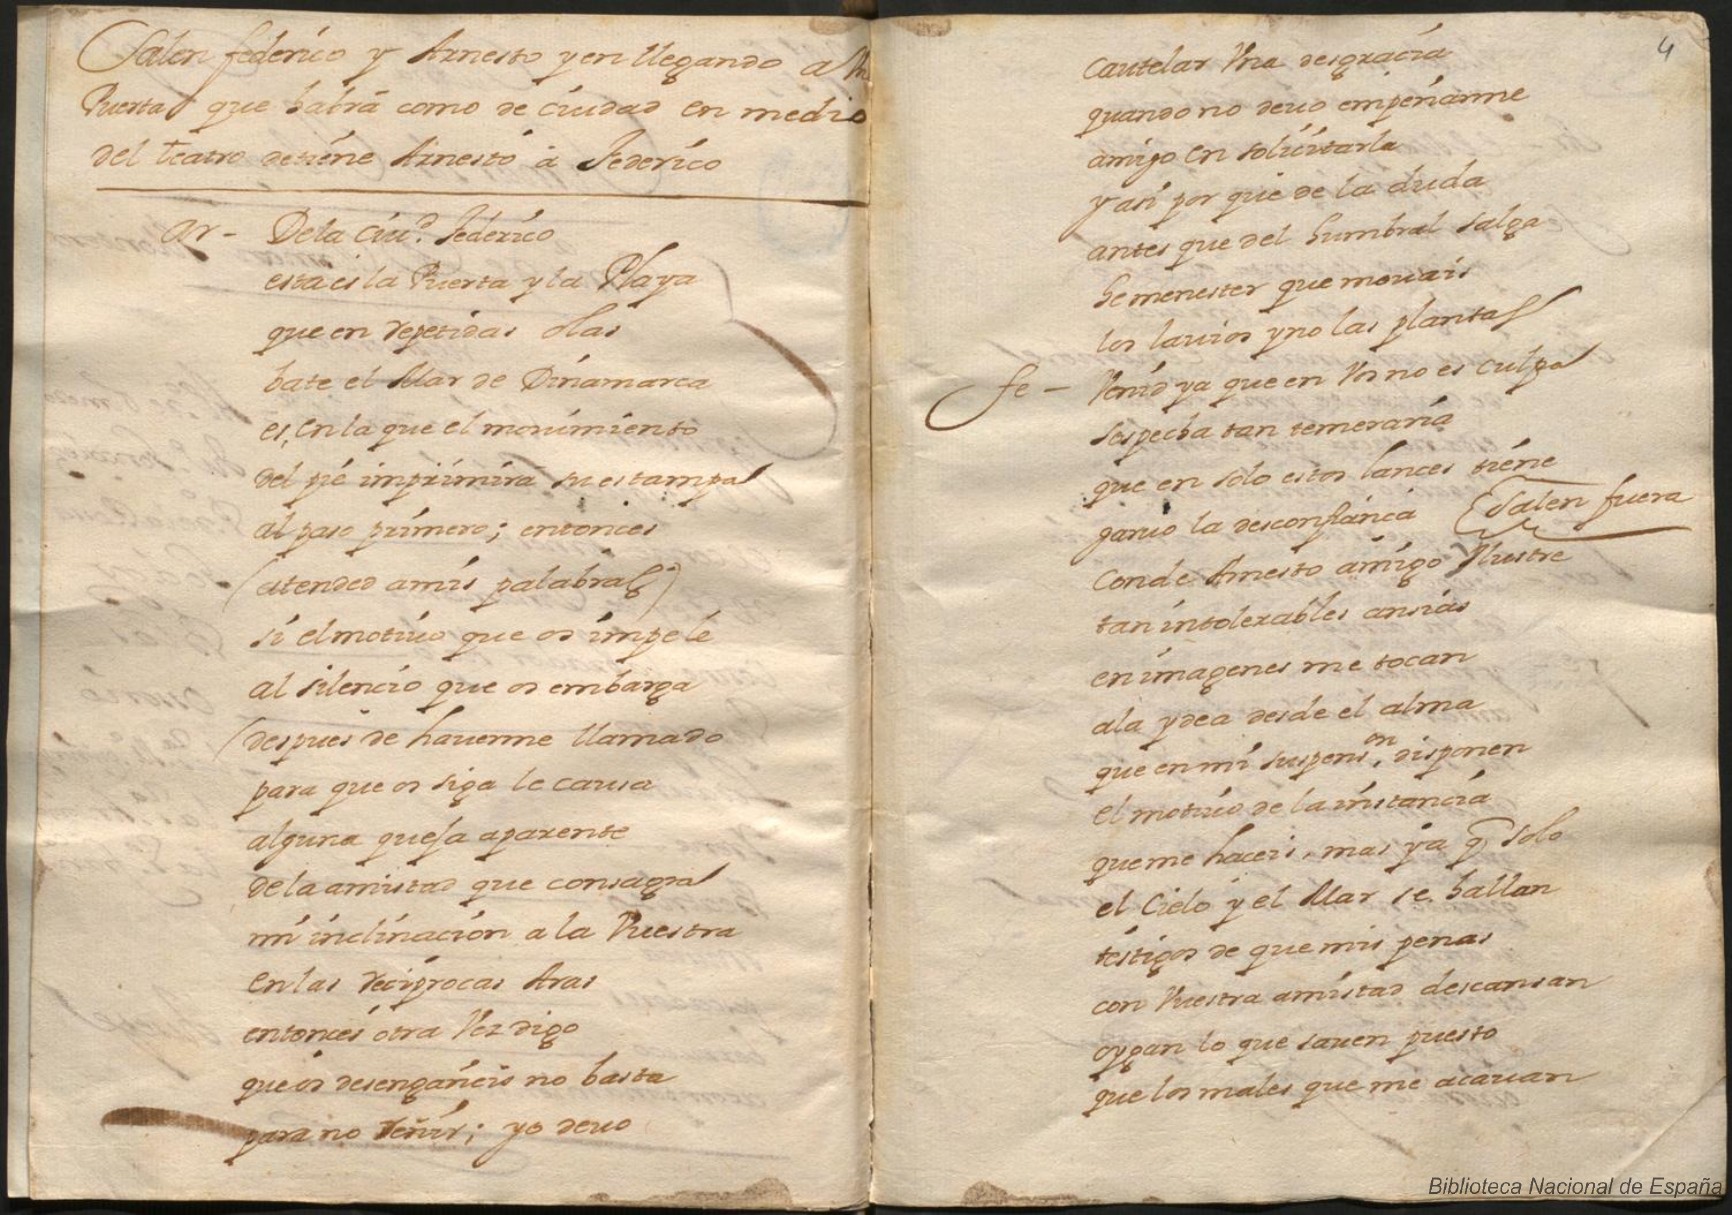 Salen federico y Arnesto y en llegando a Vn
Puerta que habrá como de ciudad en medio
del teatro detiene Arnesto a Federico
Ar - De la Ciud. Federico
esta es la Puerta y la Playa
que en repetidas olas
bate el Mar de Dinamarca
es, en la que el mouimiento
del pie imprimirá su estampa
al paso primero; entonces
(atended a mis palabras)
si el motiuo que os impele
al silencio que os embarga
(despues de hauerme llamado
para que os siga le causa
alguna queja aparente
de la amistad que consagra
mi inclinacion a la Vuestra
en las reciprocas Aras
entonces otra Vez digo
que os desengañeis no basta
para no reñir; yo deuo
4
cautelar Vna desgracia
quando no deuo empeñarme
amigo en solicitarla
y asi por que de la duda
antes que del humbral salga
he menester que mouais
los lauios y no las plantas
fe - Venid ya que en Vos no es culpa
sospecha tan temeraria
que en solo estos lances tiene
garuo la desconfianca
Salen fuera
Conde Arnesto amigo Ylustre
tan intolerables ansias
en imagenes me tocan
a la ydea desde el alma
que en mi suspension, disponen
el motiuo de la instancia
que me haceis, mas ya q solo
el Cielo y el Mar se hallan
testigos de que mis penas
con Vuestra amistad descansan
oygan lo que sauen puesto
que los males que me acauan
Biblioteca Nacional de España